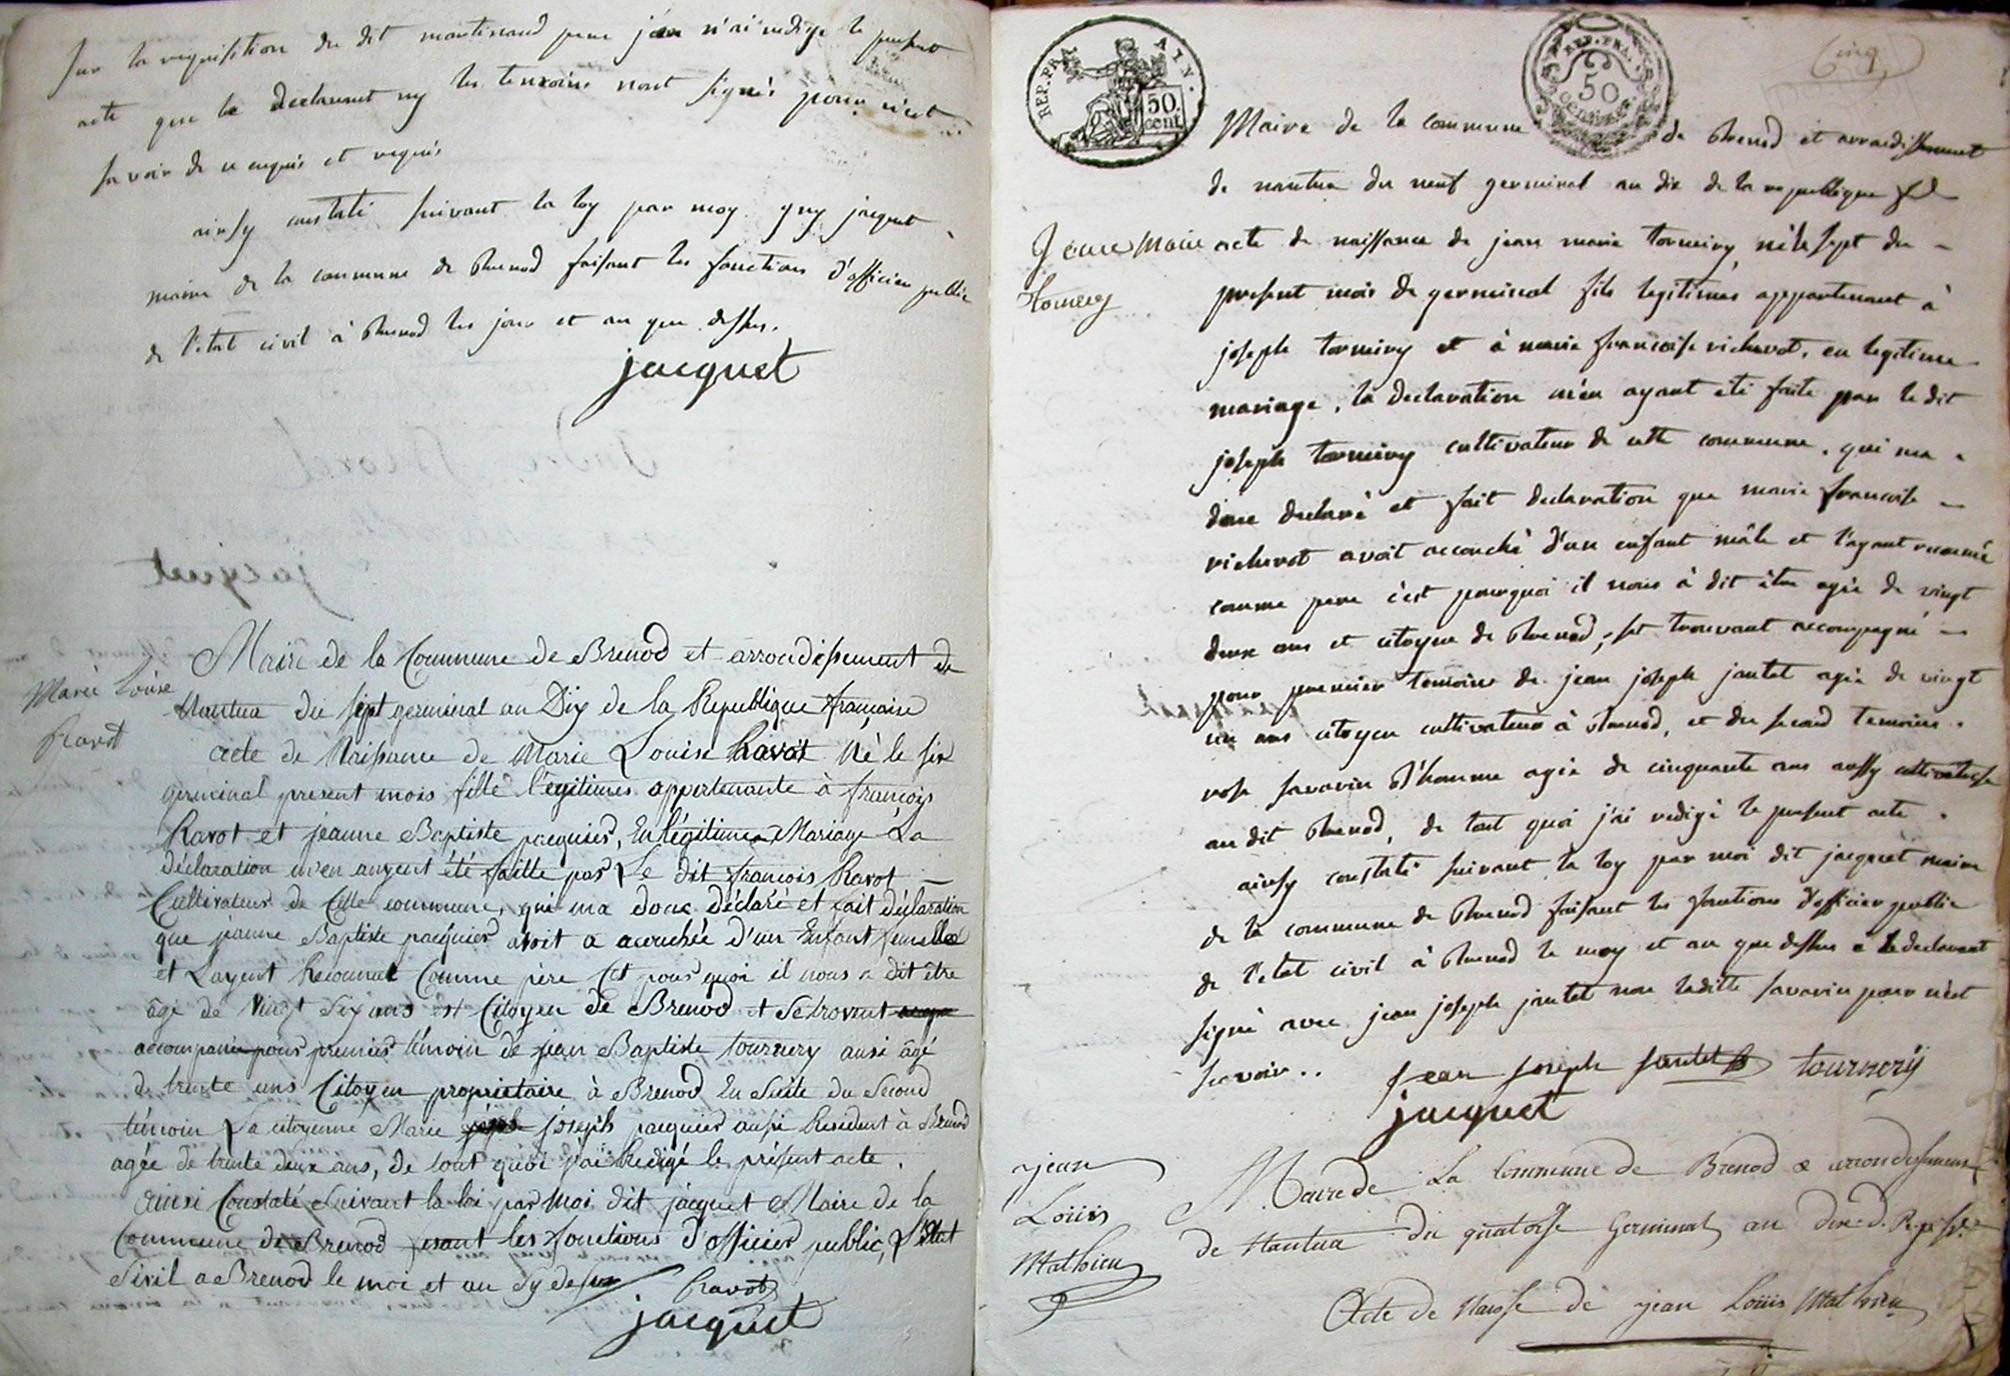 Sur la requisition du dit montinaud pour j'en n'ai redigé le present
acte que le declarant ny les temoins n'ont signés pour n'ent
savoir de ce enquis et requis
ainsy constaté suivant la loy par moy guy jacquet
maire de la commune de Brenod faisant les fonctions d'officier public
de l'etat civil à Brenod les jour et an que dessus.
jacquet
Maire de la Commune de Brenod et arrondissement de
Marie Louise
Nantua du sept germinal an Dix de la Republique française
Travot
acte de Naissance de Marie Louise Travot Né le six
germinal present mois fille légitimes appertenante à françois
Ravot et jeanne Baptiste pacquier, En légitimes Mariage La
déclaration m'en ayent été faitte par Le dit francois Ravot
Cultivateur de Cette commune, qui ma donc déclaré et fait déclaration
que jeanne Baptiste pacquier avoit a acouchée d'un Enfant femelle
et Layent Reconnut Comme père Cet pour quoi il nous a dit être
âgé de Vingt Six ans et Citoyen de Brenod et Se trovent
accompanie pour premier témoin de jean Baptiste tournery ausi âgé
de trente ans Citoyen proprietaire à Brenod En Suite du Second
témoin La citoyenne Marie joseph pacquier aussi Residant à Brenod
agée de trente deux ans, de tout quoi j'ai Redigé le présent acte.
ainsi Constaté Suivant la loi par Moi dit jacquet Maire de la
Commune de Brenod fesant les fonctions d'officier public, L'Etat
Sivil a Brenod le moi et an Sy desus
Travot
jacquet
REP. FRA. AIN.
50 cent
REP. FRA.
50
CENTIMES
Cinq
Maire de la commune de Brenod et arrondissement
de nantua du neuf germinal an dix de la republique
Jean Marie
tornery
acte de naissance de jean marie tornery né le sept du
present mois de germinal fils legitimes appartenant à
joseph tornery et à marie francoise richerot, en legitime
mariage, la declaration m'en ayant été faite par le dit
joseph tornery cultivateur de cette commune, qui ma
donc declaré et fait declaration que marie francoise
richerot avoit accouché d'un enfant mâle et l'ayant reconnu
comme pere c'est pourquoi il nous à dit être agée de vingt
deux ans et citoyen de Brenod, se trouvant accompagné
pour premier temoins de jean joseph jantet agée de vingt
un ans citoyen cultivateur à Brenod, et du second temoins
rose savarin B'homme agée de cinquante ans aussy cultivatrisse
au dit Brenod, de tout quoi j'ai redigé le present acte
ainsy constaté suivant la loy par moi dit jacquet maire
de la commune de Brenod faisant les fonctions d'officier public
de l'etat civil à Brenod le moy et an que dessus le declarant
signé avec jean joseph jantet non ladite savarin pour n'ent
savoir..
jean joseph jantet tournery
jacquet
jean
Louis
Mathieu
Maire de La Commune de Brenod & arrondissement
de Nantua du quatorse Germinal an dix d. Rep. fse
Acte de Naisse de jean Louis Mathieu